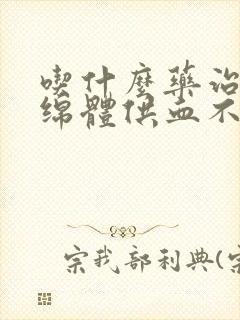 喫什麼藥治
綿體供血不
宗我部利典(宗